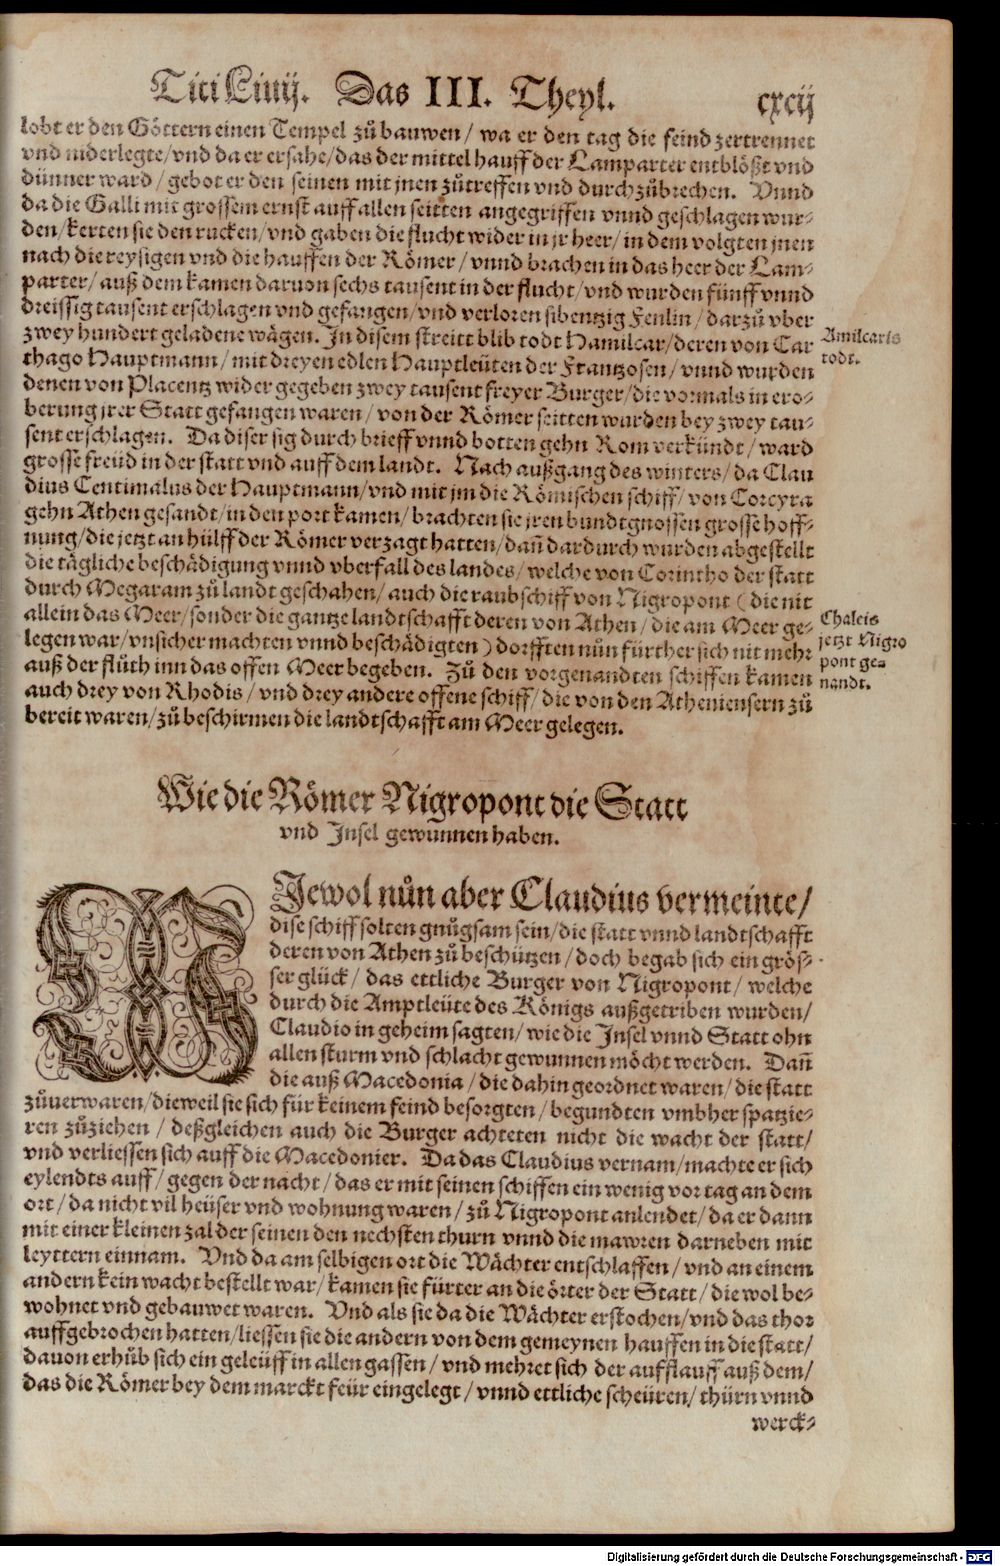 Titi Liuij. Das III. Theyl. cxcij
lobt er den Göttern einen Tempel zů bauwen / wa er den tag die feind zertrennet
vnd niderlegte / vnd da er ersahe / das der mittel hauff der Lamparter entblößt vnd
dünner ward / gebot er den seinen mit jnen zůtreffen vnd durchzůbrechen. Vnnd
da die Galli mit grossem ernst auff allen seitten angegriffen vnnd geschlagen wur⸗
den / kerten sie den rucken / vnd gaben die flucht wider in jr heer / in dem volgten jnen
nach die reysigen vnd die hauffen der Römer / vnnd brachen in das heer der Lam⸗
parter / auß dem kamen daruon sechs tausent in der flucht / vnd wurden fünff vnnd
dreissig tausent erschlagen vnd gefangen / vnd verloren sibentzig Fenlin / darzů vber
zwey hundert geladene wägen. In disem streitt blib todt Hamilcar / deren von Car
thago Hauptmann / mit dreyen edlen Hauptleüten der Frantzosen / vnnd wurden
denen von Placentz wider gegeben zwey tausent freyer Burger / die vormals in ero⸗
berung jrer Statt gefangen waren / von der Römer seitten wurden bey zwey tau⸗
sent erschlagen. Da diser sig durch brieff vnnd botten gehn Rom verkündt / ward
grosse freüd in der statt vnd auff dem landt. Nach außgang des winters / da Clau
dius Centimalus der Hauptmann / vnd mit jm die Römischen schiff / von Corcyra
gehn Athen gesandt / in den port kamen / brachten sie jren bundtgnossen grosse hoff⸗
nung / die jetzt an hülff der Römer verzagt hatten / dañ dardurch wurden abgestellt
die tägliche beschädigung vnnd vberfall des landes / welche von Corintho der statt
durch Megaram zů landt geschahen / auch die raubschiff von Nigropont (die nit
allein das Meer / sonder die gantze landtschafft deren von Athen / die am Meer ge⸗
legen war / vnsicher machten vnnd beschädigten) dorfften nůn fürther sich nit mehr
auß der flůth inn das offen Meer begeben. Zů den vorgenandten schiffen kamen
auch drey von Rhodis / vnd drey andere offene schiff / die von den Atheniensern zů
bereit waren / zů beschirmen die landtschafft am Meer gelegen.
Amilcaris
todt.
Chalcis
jetzt Nigro
pont ge⸗
nandt.
Wie die Römer Nigropont die Statt
vnd Insel gewunnen haben.
WIewol nůn aber Claudius vermeinte /
dise schiff solten gnůgsam sein / die statt vnnd landtschafft
deren von Athen zů beschützen / doch begab sich ein grös⸗
ser glück / das ettliche Burger von Nigropont / welche
durch die Amptleüte des Königs außgetriben wurden /
Claudio in geheim sagten / wie die Insel vnnd Statt ohn
allen sturm vnd schlacht gewunnen möcht werden. Dañ
die auß Macedonia / die dahin geordnet waren / die statt
zůuerwaren / dieweil sie sich für keinem feind besorgten / begundten vmbher spatzie⸗
ren zůziehen / deßgleichen auch die Burger achteten nicht die wacht der statt /
vnd verliessen sich auff die Macedonier. Da das Claudius vernam / machte er sich
eylendts auff / gegen der nacht / das er mit seinen schiffen ein wenig vor tag an dem
ort / da nicht vil heüser vnd wohnung waren / zů Nigropont anlendet / da er dann
mit einer kleinen zal der seinen den nechsten thurn vnnd die mawren darneben mit
leyttern einnam. Vnd da am selbigen ort die Wächter entschlaffen / vnd an einem
andern kein wacht bestellt war / kamen sie fürter an die örter der Statt / die wol be⸗
wohnet vnd gebauwet waren. Vnd als sie da die Wächter erstochen / vnd das thor
auffgebrochen hatten / liessen sie die andern von dem gemeynen hauffen in die statt /
dauon erhůb sich ein geleüff in allen gassen / vnd mehret sich der aufflauff auß dem /
das die Römer bey dem marckt feür eingelegt / vnnd ettliche scheüren / thürn vnnd
werck⸗
Digitalisierung gefördert durch die Deutsche Forschungsgemeinschaft - DFG